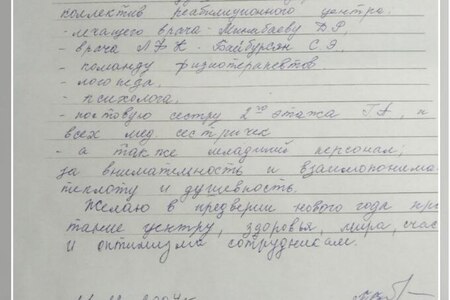 коллектив реабилиционного центра:
- лечащего врача - Минабаеву Д.Р,
- врача ЛФК - Байбурсян С.Э.
- команду физиотерапевтов.
- логопеда
- психолога,
- постовую сестру 2го этажа и
всех мед. сестричек
- а также младший персонал,
за внимательность и взаимопонима
теплоту и душевность.
Желаю в предверии нового года про
тание центру, здоровья, мира, счас
и оптимизма сотрудникам.